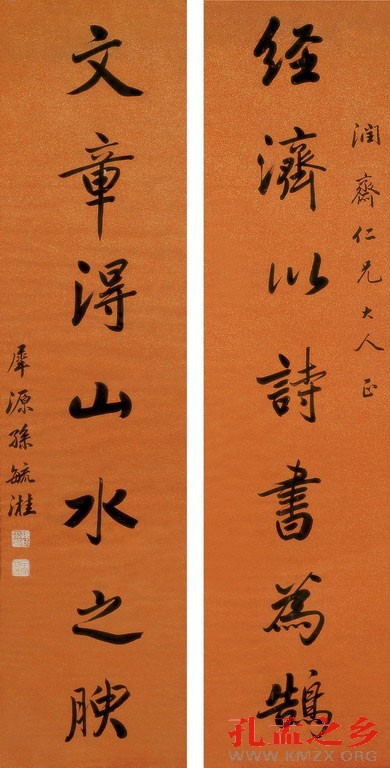 潤齋仁兄大人正
經濟以詩書為鵠
文章得山水之腴
犀源孫毓溎
孔孟之乡
WWW.KMZX.ORG